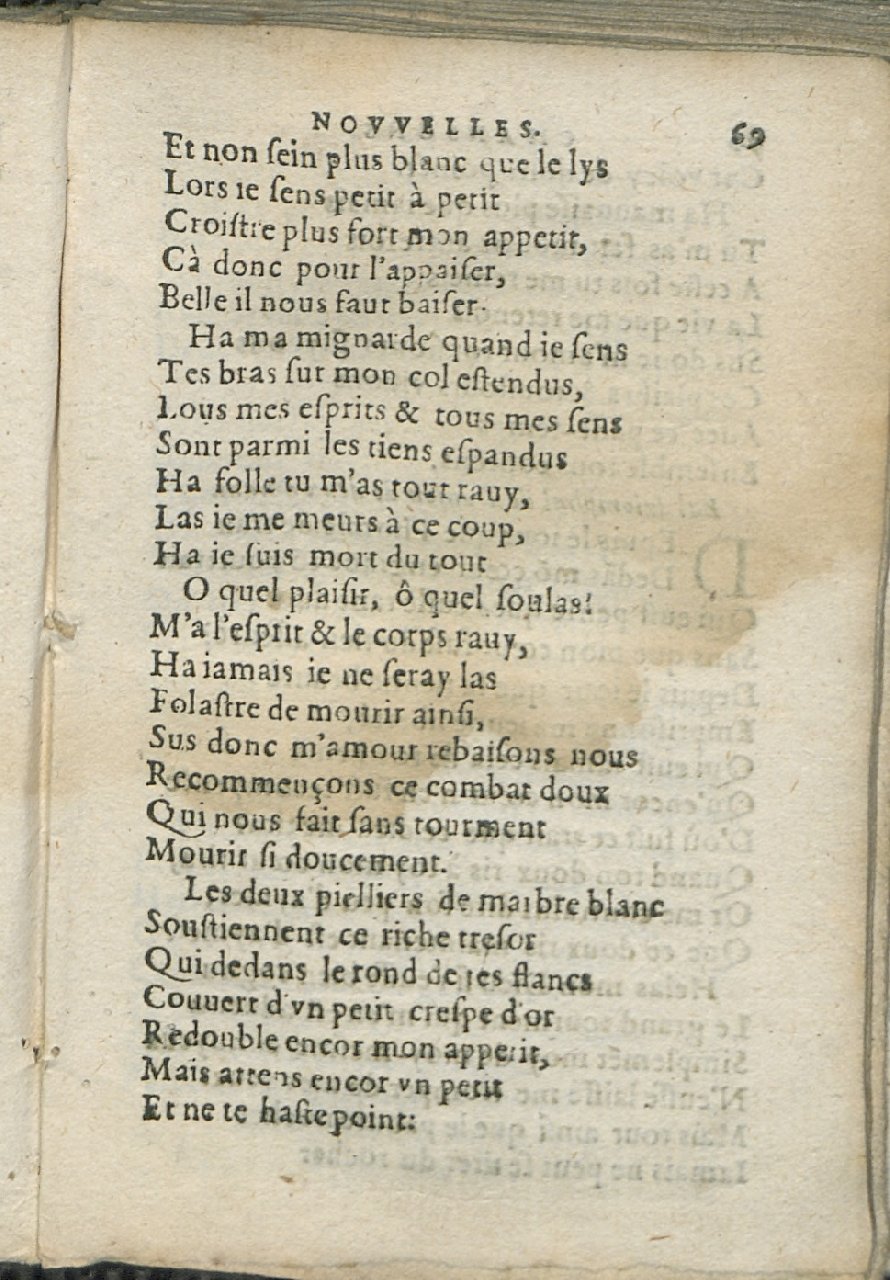 NOVVELLES. 69
Et non ſein plus blanc que le lys
Lors ie ſens petit à petit
Croiſtre plus fort mon appetit,
Cà donc pour l'appaiſer,
Belle il nous faut baiſer.
Ha ma mignarde quand ie ſens
Tes bras ſur mon col eſtendus,
Lous mes eſprits & tous mes ſens
Sont parmi les tiens eſpandus
Ha folle tu m'as tout rauy,
Las ie me meurs à ce coup,
Ha ie ſuis mort du tout
O quel plaiſir, ô quel ſoulas!
M'a l'eſprit & le corps rauy,
Ha iamais ie ne ſeray las
Folaſtre de mourir ainſi,
Sus donc m'amour rebaiſons nous
Recommençons ce combat doux
Qui nous fait ſans tourment
Mourir ſi doucement.
Les deux pielliers de marbre blanc
Souſtiennent ce riche treſor
Qui dedans le rond de tes flancs
Couuert d'vn petit creſpe d'or
Redouble encor mon appetit,
Mais attens encor vn petit
Et ne te haſte point: